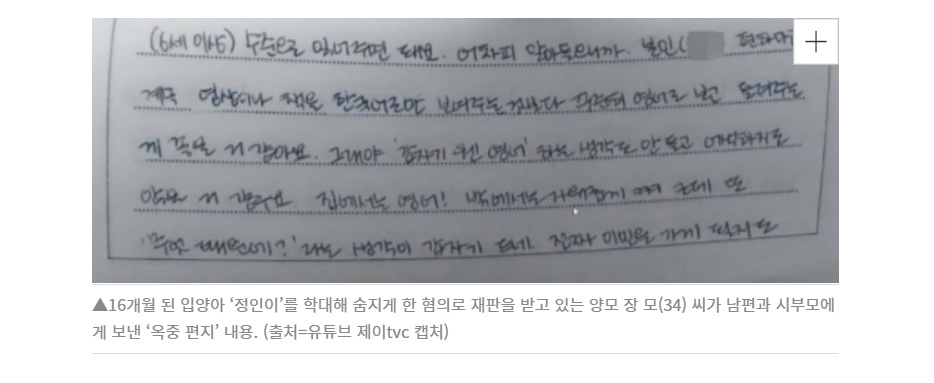 (6세 이상) 수준으로 읽어주면 돼요. 어차피 알아들으니까.
계속 영상이나 책을 한국어로만 보여주는것보다 영어로 들려주는
게 좋을 거 같아요. 그래야 '갑자기 웬 영어' 하는 생각도 안 들고 어색하지도
않을 거 같구요. 집에서는 영어! 밖에서는 근데 또
'무엇 때문에?' 라는 생각이 갑자기 드네. 진짜 이민을 가게 될지도
▲16개월 된 입양아 ‘정인이’를 학대해 숨지게 한 혐의로 재판을 받고 있는 양모 장 모(34) 씨가 남편과 시부모에
게 보낸 ‘옥중 편지’ 내용. (출처=유튜브 제이tvc 캡처)